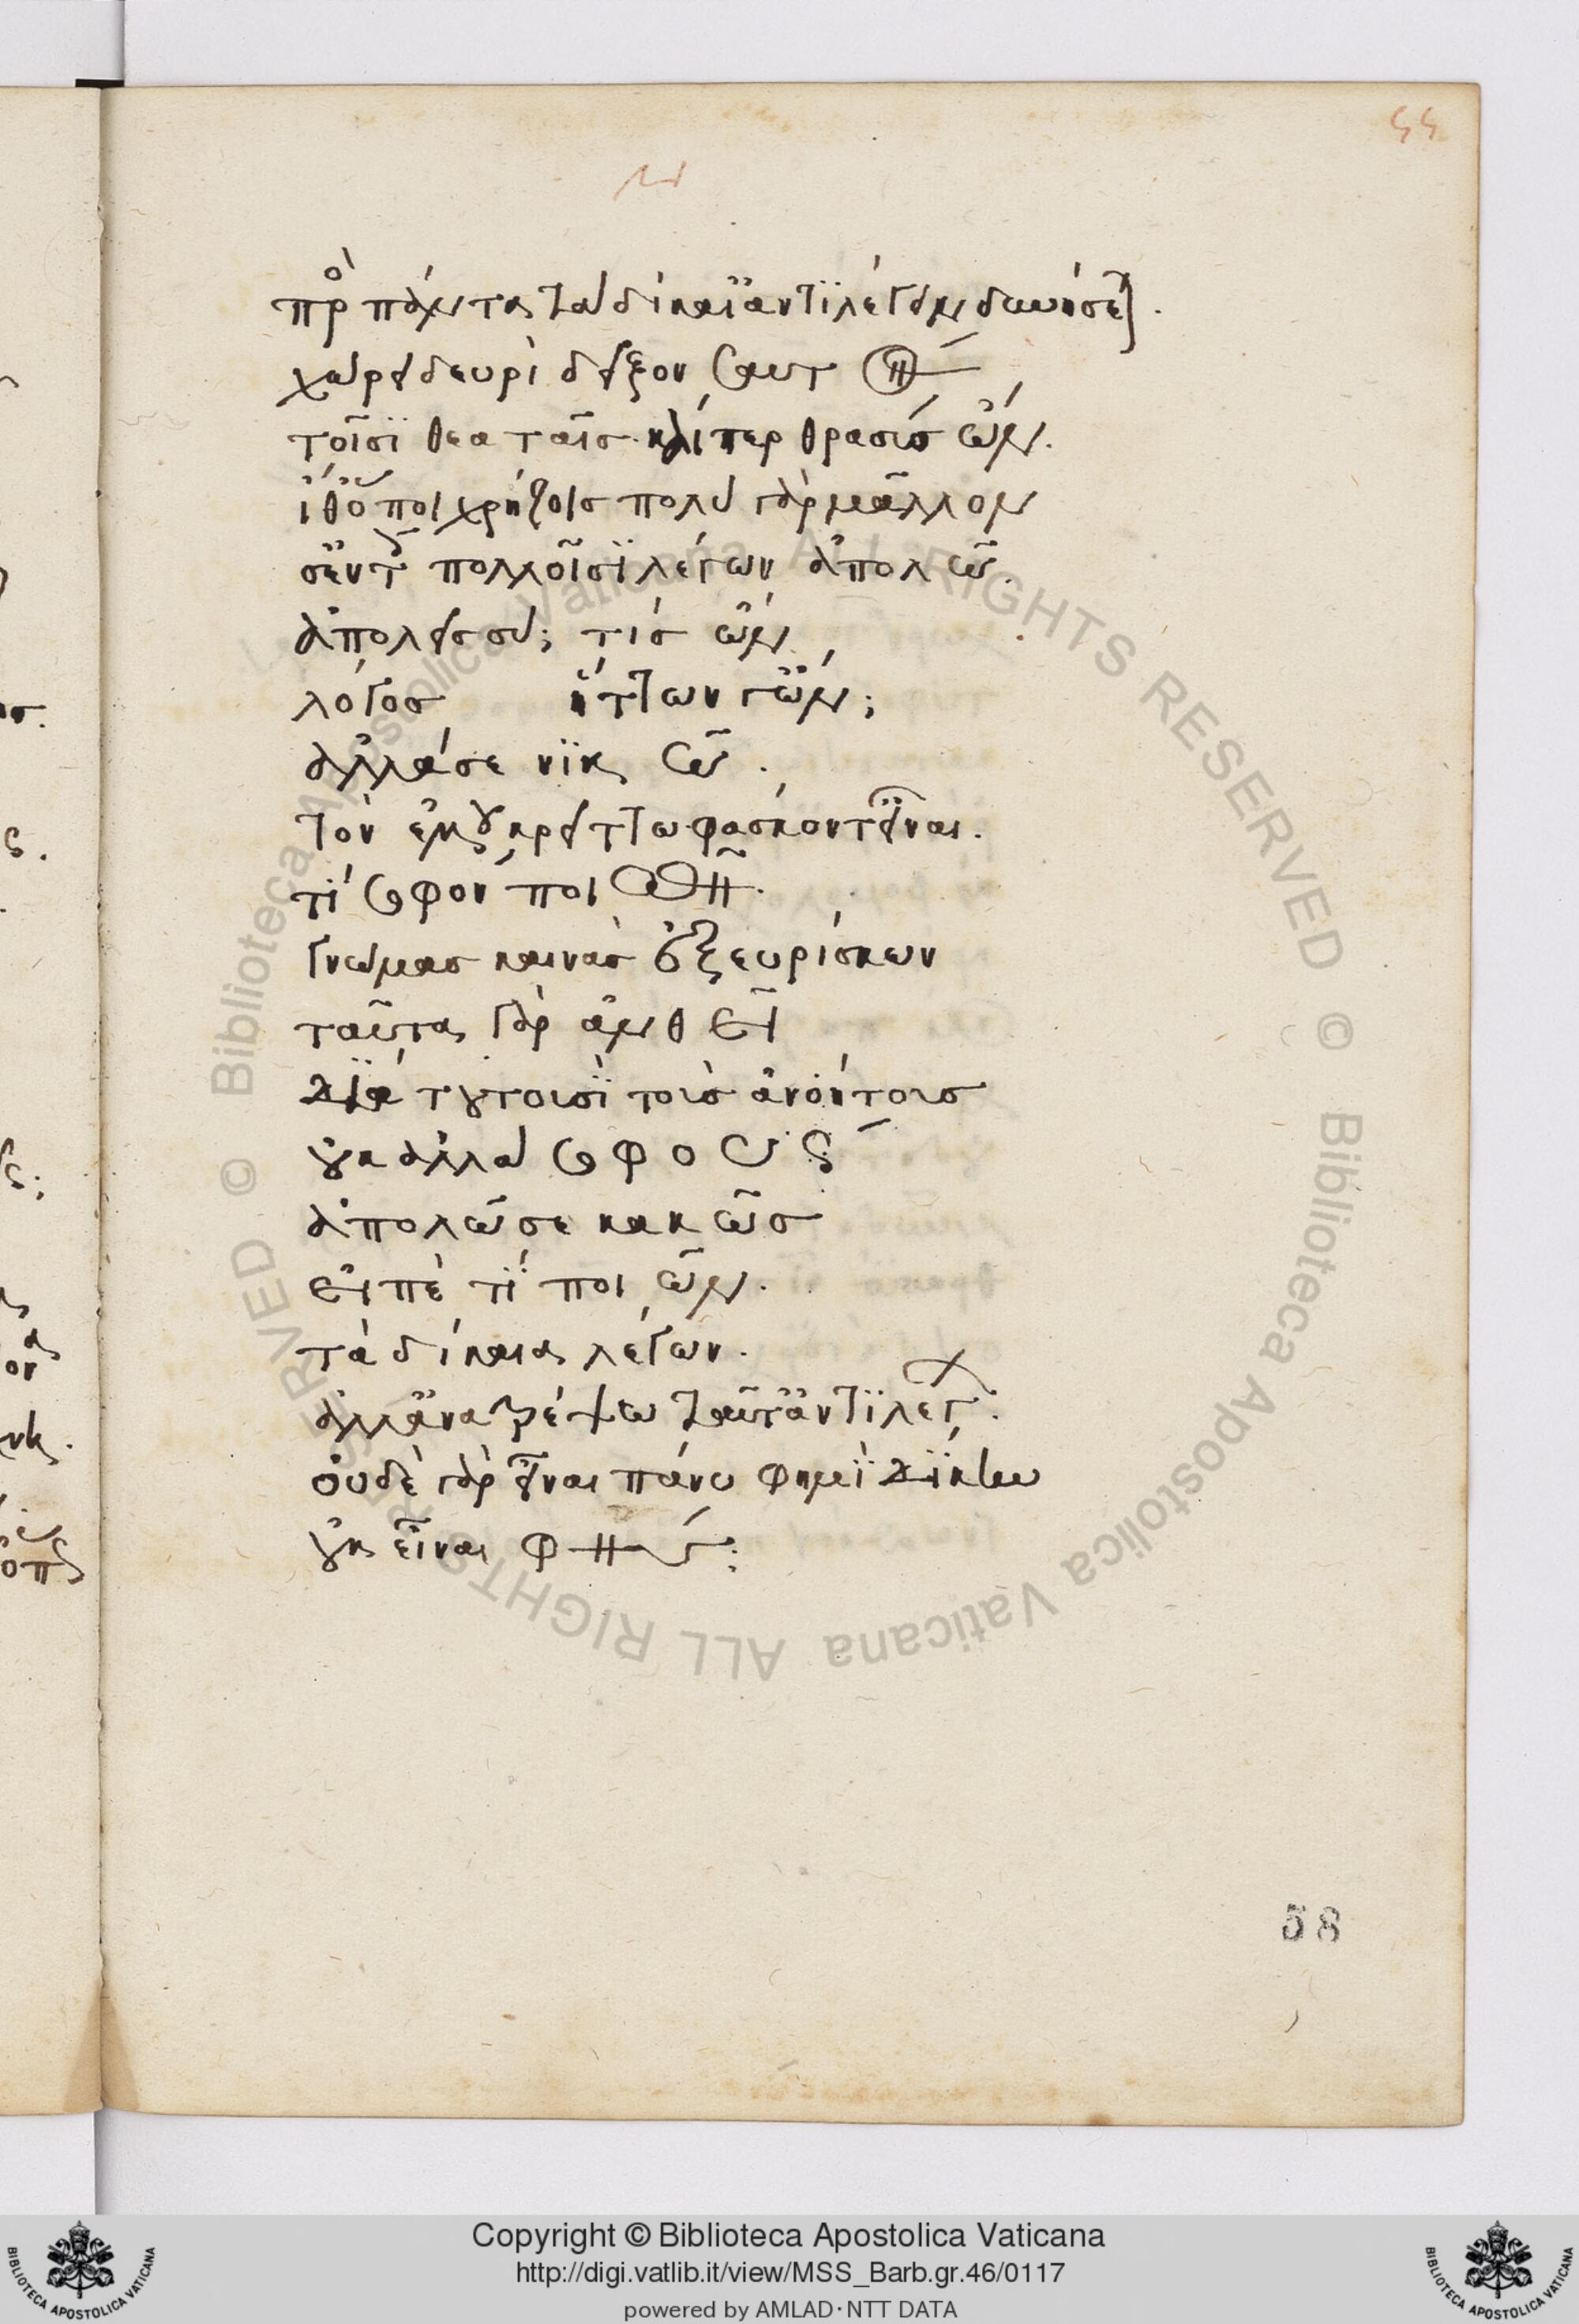 55
πρὸς πάντα τὰ δίκαι' ἀντιλέγειν δυνήσεται.
χώρει δευρὶ δεῖξον σαυτὸν
τοῖσι θεαταῖς καίπερ θρασὺς ὤν.
ἴθ' ὅποι χρήζεις πολὺ γὰρ μᾶλλον
σ' ἐν τοῖς πολλοῖσι λέγων ἀπολῶ.
ἀπολεῖς σύ; τίς ὤν
λόγος ἥττων γ' ὤν;
ἀλλά σε νικῶ.
τὸν ἐμοῦ κρείττω φάσκοντ' εἶναι.
τί σοφὸν ποιῶν.
γνώμας καινὰς ἐξευρίσκων
ταῦτα γὰρ ἀνθεῖ
διὰ τουτοισὶ τοὺς ἀνοήτους
οὐκ ἀλλὰ σοφούς
ἀπολῶ σε κακῶς
εἰπὲ τί ποιῶν.
τὰ δίκαια λέγων.
ἀλλ' ἀνατρέψω ταῦτ' ἀντιλέγων.
οὐδὲ γὰρ εἶναι πάνυ φημὶ δίκην
οὐκ εἶναι φής;
58
© Biblioteca Apostolica Vaticana ALL RIGHTS RESERVED
© Biblioteca Apostolica Vaticana ALL RIGHTS RESERVED
Copyright © Biblioteca Apostolica Vaticana
http://digi.vatlib.it/view/MSS_Barb.gr.46/0117
powered by AMLAD·NTT DATA
BIBLIOTECA APOSTOLICA VATICANA
BIBLIOTECA APOSTOLICA VATICANA